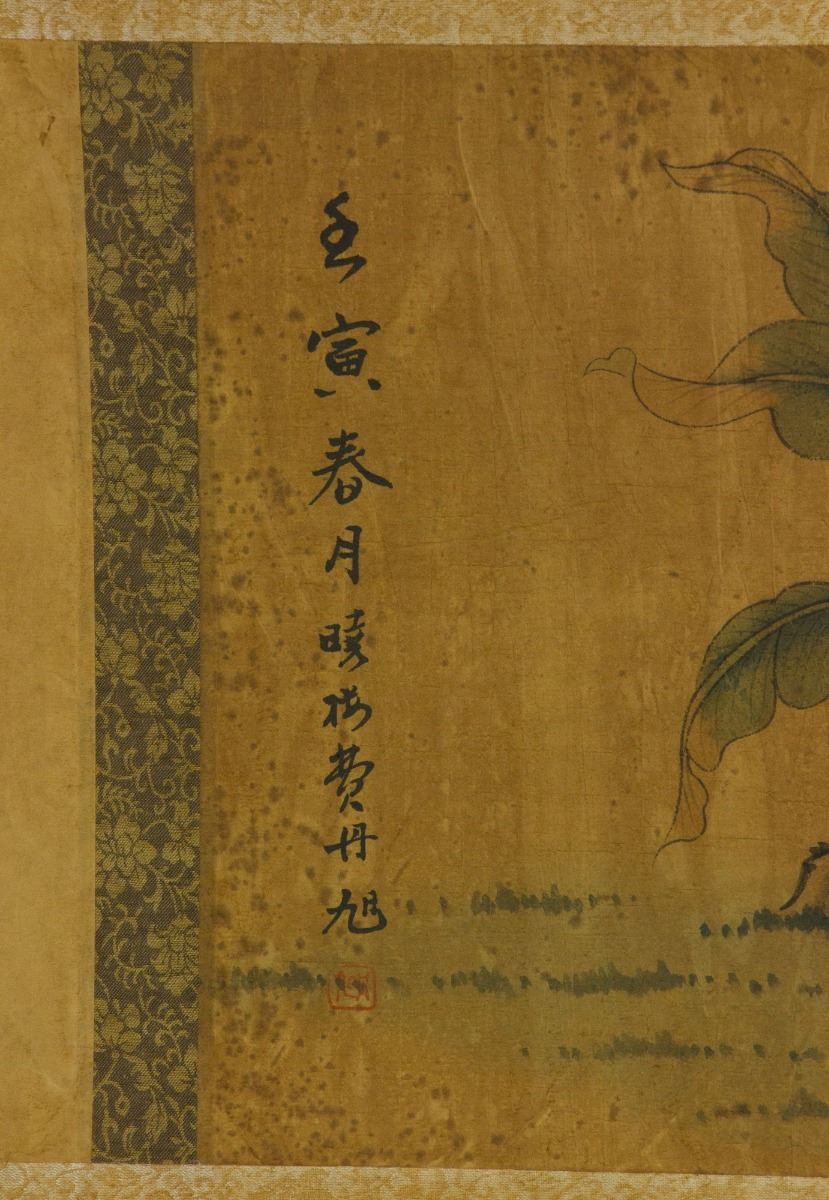 壬寅春月曉楼費丹旭